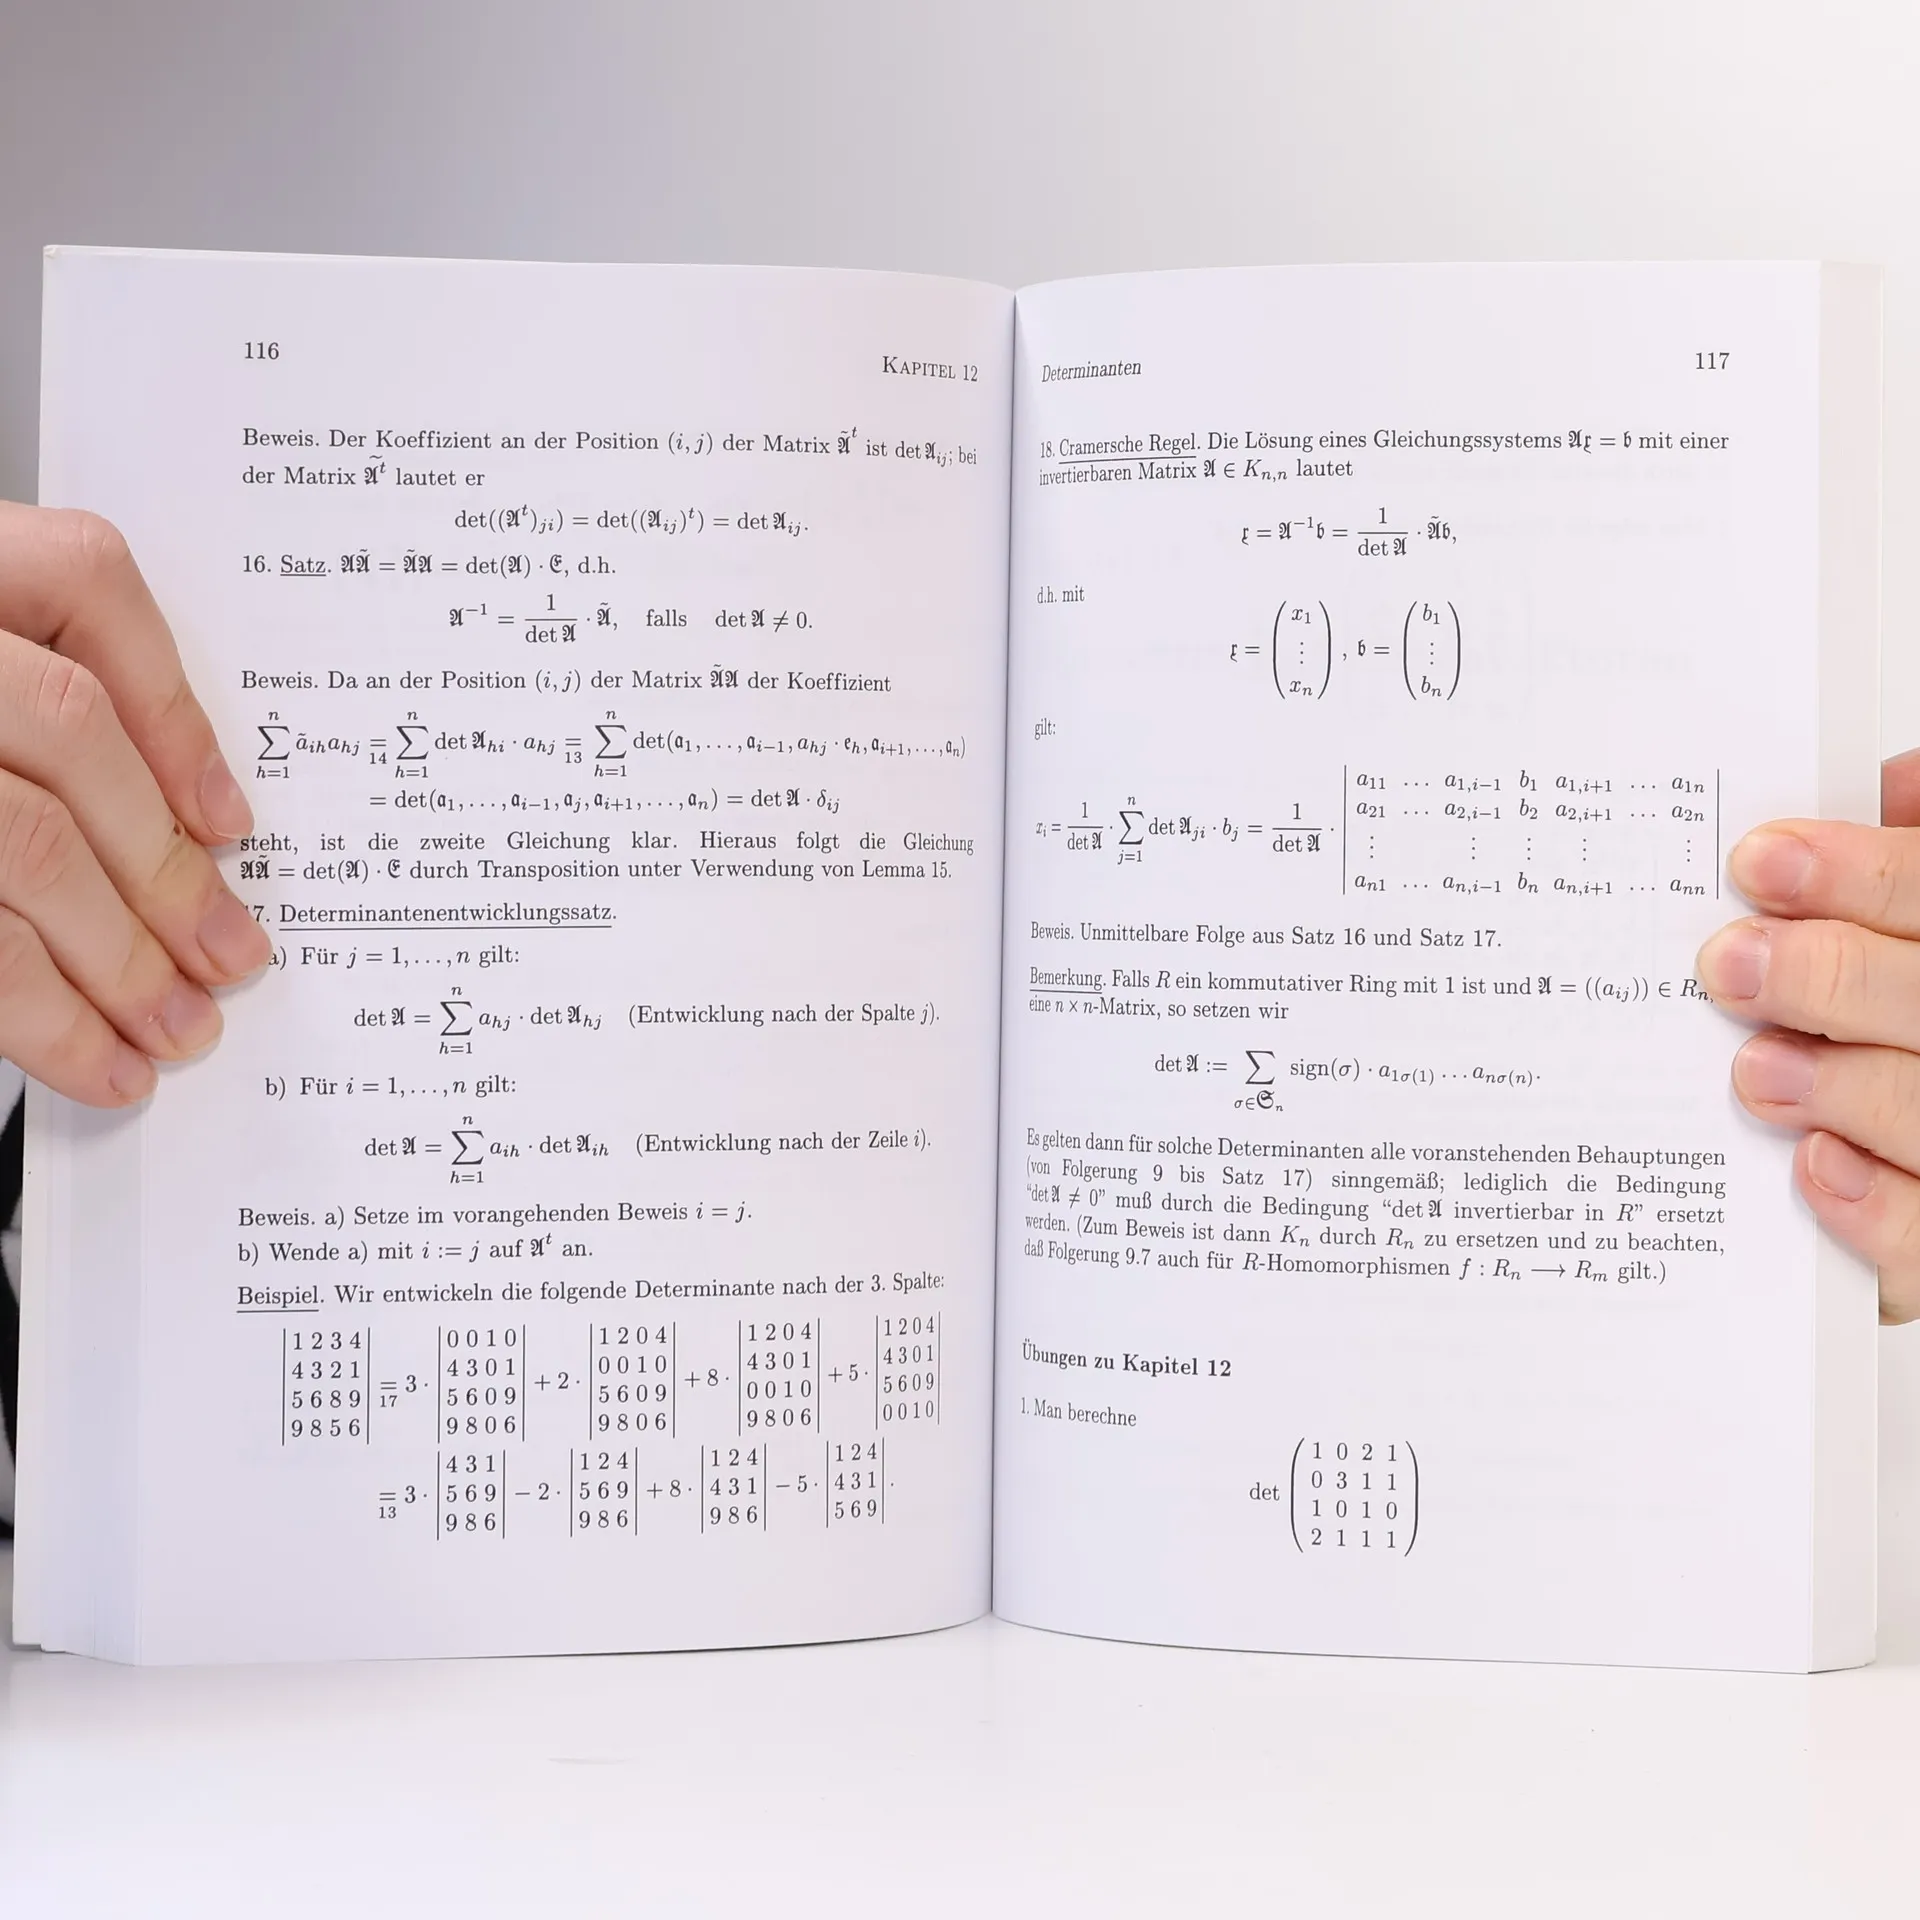 116
KAPITEL 12
Beweis. Der Koeffizient an der Position (i, j) der Matrix 𝔄̃ᵗ ist det 𝔄ᵢⱼ; bei
der Matrix 𝔄ᵗ̃ lautet er
det((𝔄ᵗ)ⱼᵢ) = det((𝔄ᵢⱼ)ᵗ) = det 𝔄ᵢⱼ.
16. Satz. 𝔄𝔄̃ = 𝔄̃𝔄 = det(𝔄) · 𝔈, d.h.
𝔄⁻¹ = 1/det 𝔄 · 𝔄̃, falls det 𝔄 ≠ 0.
Beweis. Da an der Position (i, j) der Matrix 𝔄̃𝔄 der Koeffizient
∑_{h=1}^{n} ã_{ih}a_{hj} =_{14} ∑_{h=1}^{n} det 𝔄_{hi} · a_{hj} =_{13} ∑_{h=1}^{n} det(𝔞₁, ..., 𝔞_{i−1}, a_{hj} · 𝔢_h, 𝔞_{i+1}, ..., 𝔞_n)
= det(𝔞₁, ..., 𝔞_{i−1}, 𝔞_j, 𝔞_{i+1}, ..., 𝔞_n) = det 𝔄 · δ_{ij}
steht, ist die zweite Gleichung klar. Hieraus folgt die Gleichung
𝔄𝔄̃ = det(𝔄) · 𝔈 durch Transposition unter Verwendung von Lemma 15.
7. Determinantenentwicklungssatz.
a) Für j = 1, ..., n gilt:
det 𝔄 = ∑_{h=1}^{n} a_{hj} · det 𝔄_{hj} (Entwicklung nach der Spalte j).
b) Für i = 1, ..., n gilt:
det 𝔄 = ∑_{h=1}^{n} a_{ih} · det 𝔄_{ih} (Entwicklung nach der Zeile i).
Beweis. a) Setze im vorangehenden Beweis i = j.
b) Wende a) mit i := j auf 𝔄ᵗ an.
Beispiel. Wir entwickeln die folgende Determinante nach der 3. Spalte:
|1 2 3 4| |0 0 1 0| |1 2 0 4| |1 2 0 4| |1 2 0 4|
|4 3 2 1| |4 3 0 1| |0 0 1 0| |4 3 0 1| |4 3 0 1|
|5 6 8 9| =_{17} 3 · |5 6 0 9| + 2 · |5 6 0 9| + 8 · |0 0 1 0| + 5 · |5 6 0 9|
|9 8 5 6| |9 8 0 6| |9 8 0 6| |9 8 0 6| |0 0 1 0|
|4 3 1| |1 2 4| |1 2 4| |1 2 4|
=_{13} 3 · |5 6 9| − 2 · |5 6 9| + 8 · |4 3 1| − 5 · |4 3 1|.
|9 8 6| |9 8 6| |9 8 6| |5 6 9|
Determinanten
117
18. Cramersche Regel. Die Lösung eines Gleichungssystems 𝔄𝔵 = 𝔟 mit einer
invertierbaren Matrix 𝔄 ∈ K_{n,n} lautet
𝔵 = 𝔄⁻¹𝔟 = 1/det 𝔄 · 𝔄̃𝔟,
d.h. mit
𝔵 = (x₁ ⋮ xₙ), 𝔟 = (b₁ ⋮ bₙ)
gilt:
x_i = 1/det 𝔄 · ∑_{j=1}^{n} det 𝔄_{ji} · b_j = 1/det 𝔄 ·
|a_{11} ... a_{1,i−1} b_1 a_{1,i+1} ... a_{1n}|
|a_{21} ... a_{2,i−1} b_2 a_{2,i+1} ... a_{2n}|
|⋮ ⋮ ⋮ ⋮ ⋮|
|a_{n1} ... a_{n,i−1} b_n a_{n,i+1} ... a_{nn}|
Beweis. Unmittelbare Folge aus Satz 16 und Satz 17.
Bemerkung. Falls R ein kommutativer Ring mit 1 ist und 𝔄 = ((a_{ij})) ∈ R_{n,
eine n × n-Matrix, so setzen wir
det 𝔄 := ∑_{σ∈𝔖_n} sign(σ) · a_{1σ(1)} ... a_{nσ(n)}.
Es gelten dann für solche Determinanten alle voranstehenden Behauptungen
(von Folgerung 9 bis Satz 17) sinngemäß; lediglich die Bedingung
“det 𝔄 ≠ 0” muß durch die Bedingung “det 𝔄 invertierbar in R” ersetzt
werden. (Zum Beweis ist dann K_n durch R_n zu ersetzen und zu beachten,
daß Folgerung 9.7 auch für R-Homomorphismen f : R_n ⟶ R_m gilt.)
Übungen zu Kapitel 12
1. Man berechne
det
(1 0 2 1)
(0 3 1 1)
(1 0 1 0)
(2 1 1 1)